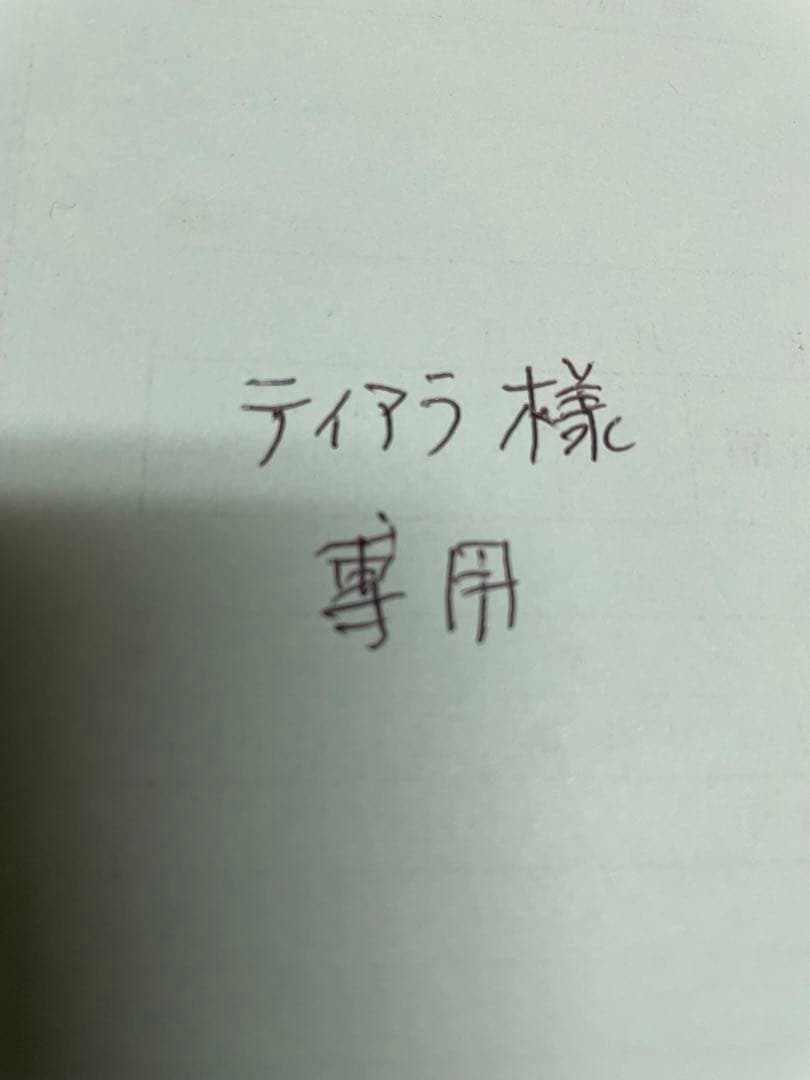 ティアラ様
専用